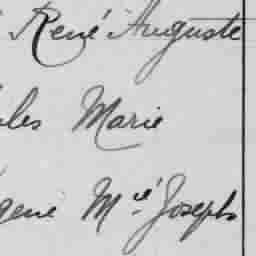 René Auguste
ules Marie
gene Mie Joseph